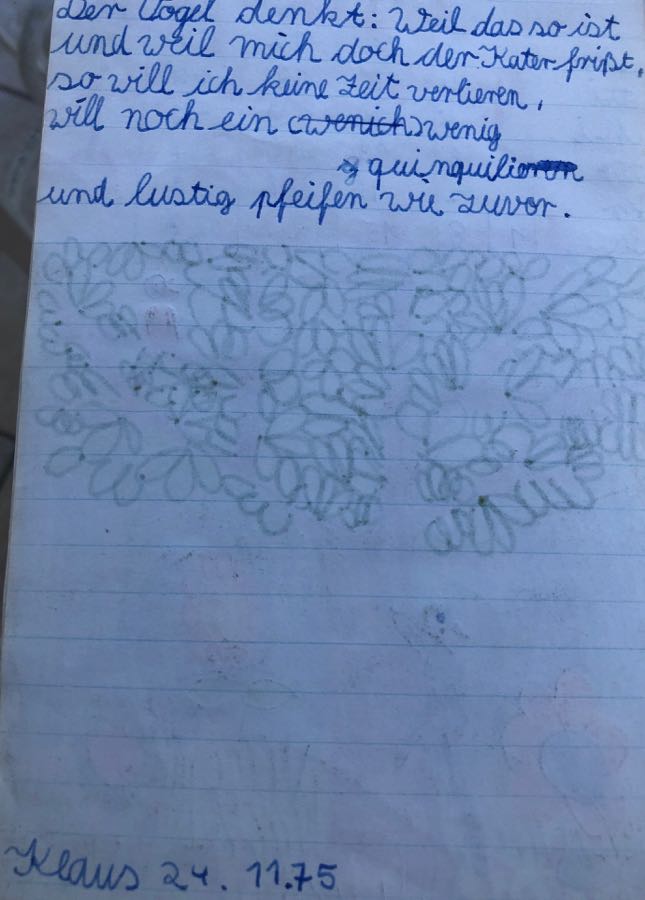 Der Vogel denkt: Weil das so ist
und weil mich doch der Kater frißt,
so will ich keine Zeit verlieren,
will noch ein (wenich) wenig
quinquilieren
und lustig pfeifen wie zuvor.
Klaus 24. 11.75